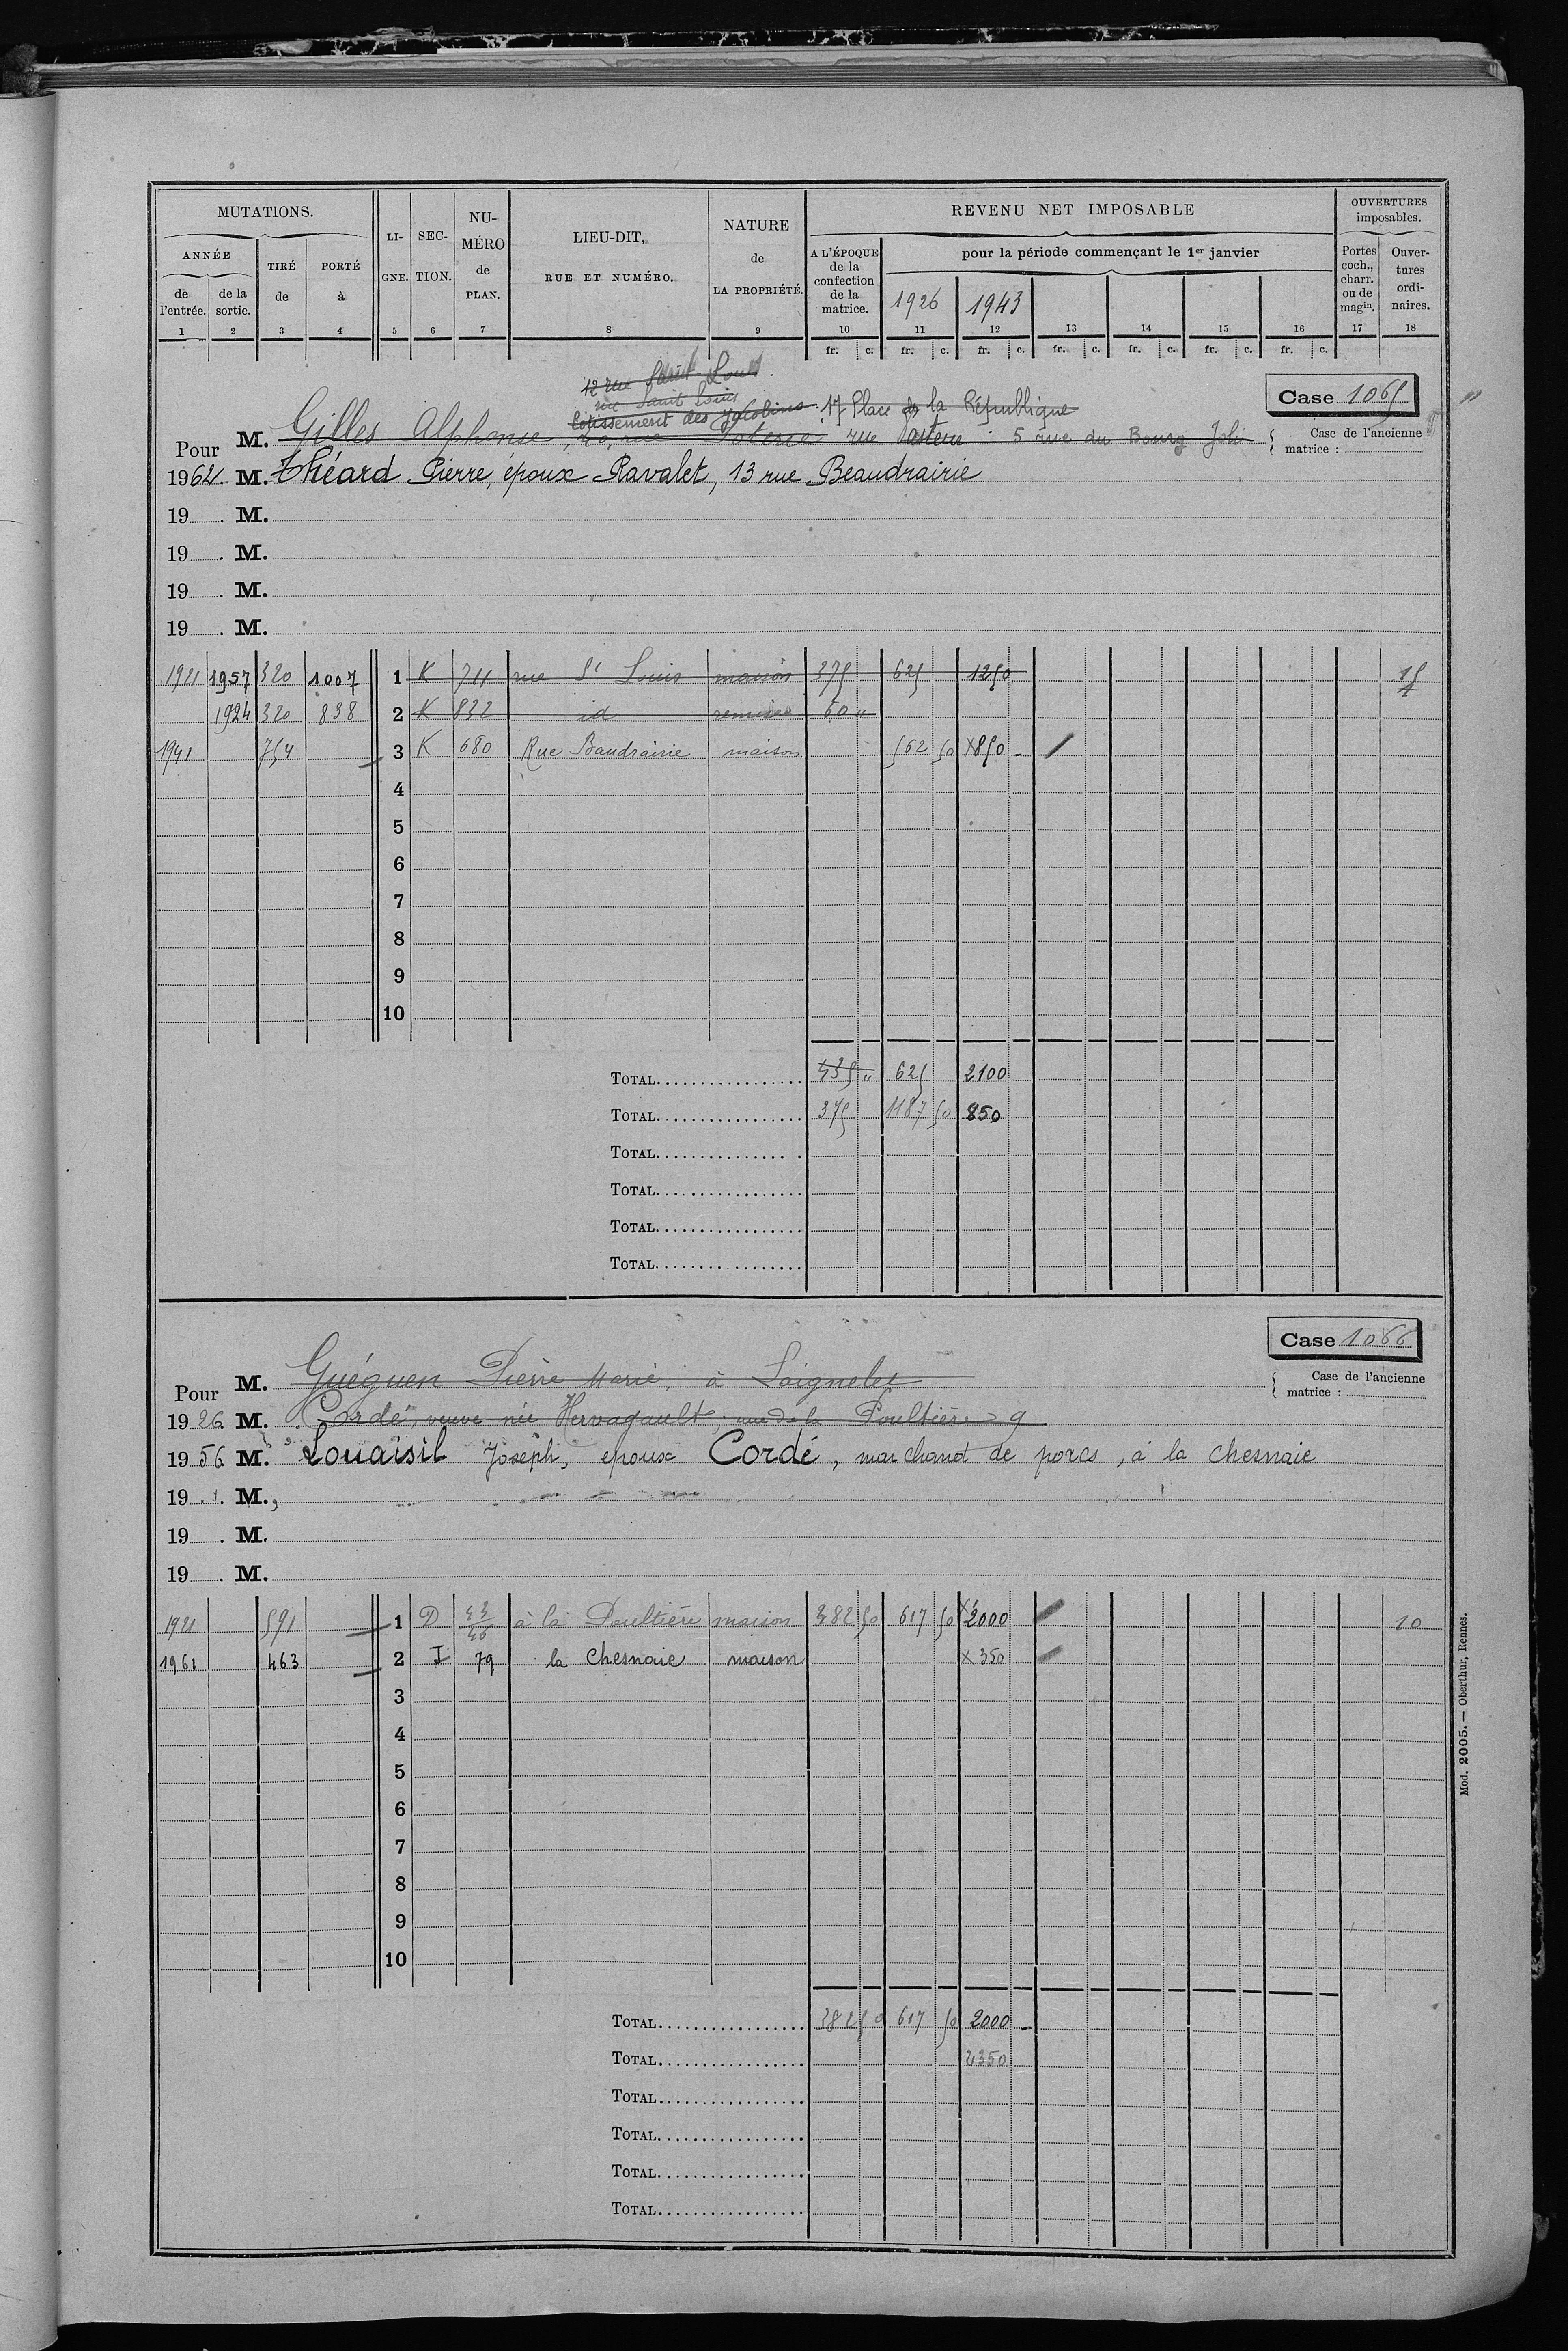 MUTATIONS. LI- GNE. SEC- TION. NU- MÉRO de PLAN. LIEU-DIT, RUE ET NUMÉRO. NATURE de LA PROPRIÉTÉ. REVENU NET IMPOSABLE OUVERTURES imposables.
ANNÉE TIRÉ de PORTÉ à A L'ÉPOQUE de la confection de la matrice. pour la période commençant le 1er janvier Portes coch., charr. ou de magin. Ouver- tures ordi- naires.
de l'entrée. de la sortie. 1926 1943
1 2 3 4 5 6 7 8 9 10 11 12 13 14 15 16 17 18
fr. c. fr. c. fr. c. fr. c. fr. c. fr. c. fr. c.
12 rue Saint-Louis
rue Saint Louis
Case 1065
Lotissement des Jacobins 17 Place de la République
Pour M. Gilles Alphonse, rue Poterie rue Pasteur 5 rue du Bourg Joli
Case de l'ancienne matrice :
1964 M. Théard Pierre, époux Ravalet, 13 rue Beaudrairie
19 . M.
19 . M.
19 . M.
19 . M.
1921 1957 320 1007 1 K 711 rue St Louis maison 375 625 1250 15
1924 320 838 2 K 832 id remise 60 "
1941 754 3 K 680 Rue Baudrairie maison 562 50 x850 -
4
5
6
7
8
9
10
TOTAL 435 " 625 2100
TOTAL 375 1187 50 850
TOTAL
TOTAL
TOTAL
TOTAL
Case 1066
Pour M. Guéguen Pierre Marie, à Laignelet
Case de l'ancienne matrice :
1926 M. Cordé, veuve née Hervagault, rue de la Poultière 9
1956 M. Louaisil Joseph, epoux Cordé, marchand de porcs, à la chesnaie
19 . M.
19 . M.
19 . M.
1921 591 1 D 43/46 à la Poultière maison 382 50 617 50 x2000 10
1961 463 2 I 79 la Chesnaie maison x350
3
4
5
6
7
8
9
10
TOTAL 382 50 617 50 2000 -
TOTAL 2350
TOTAL
TOTAL
TOTAL
TOTAL
Mod. 2005. — Oberthur, Rennes.